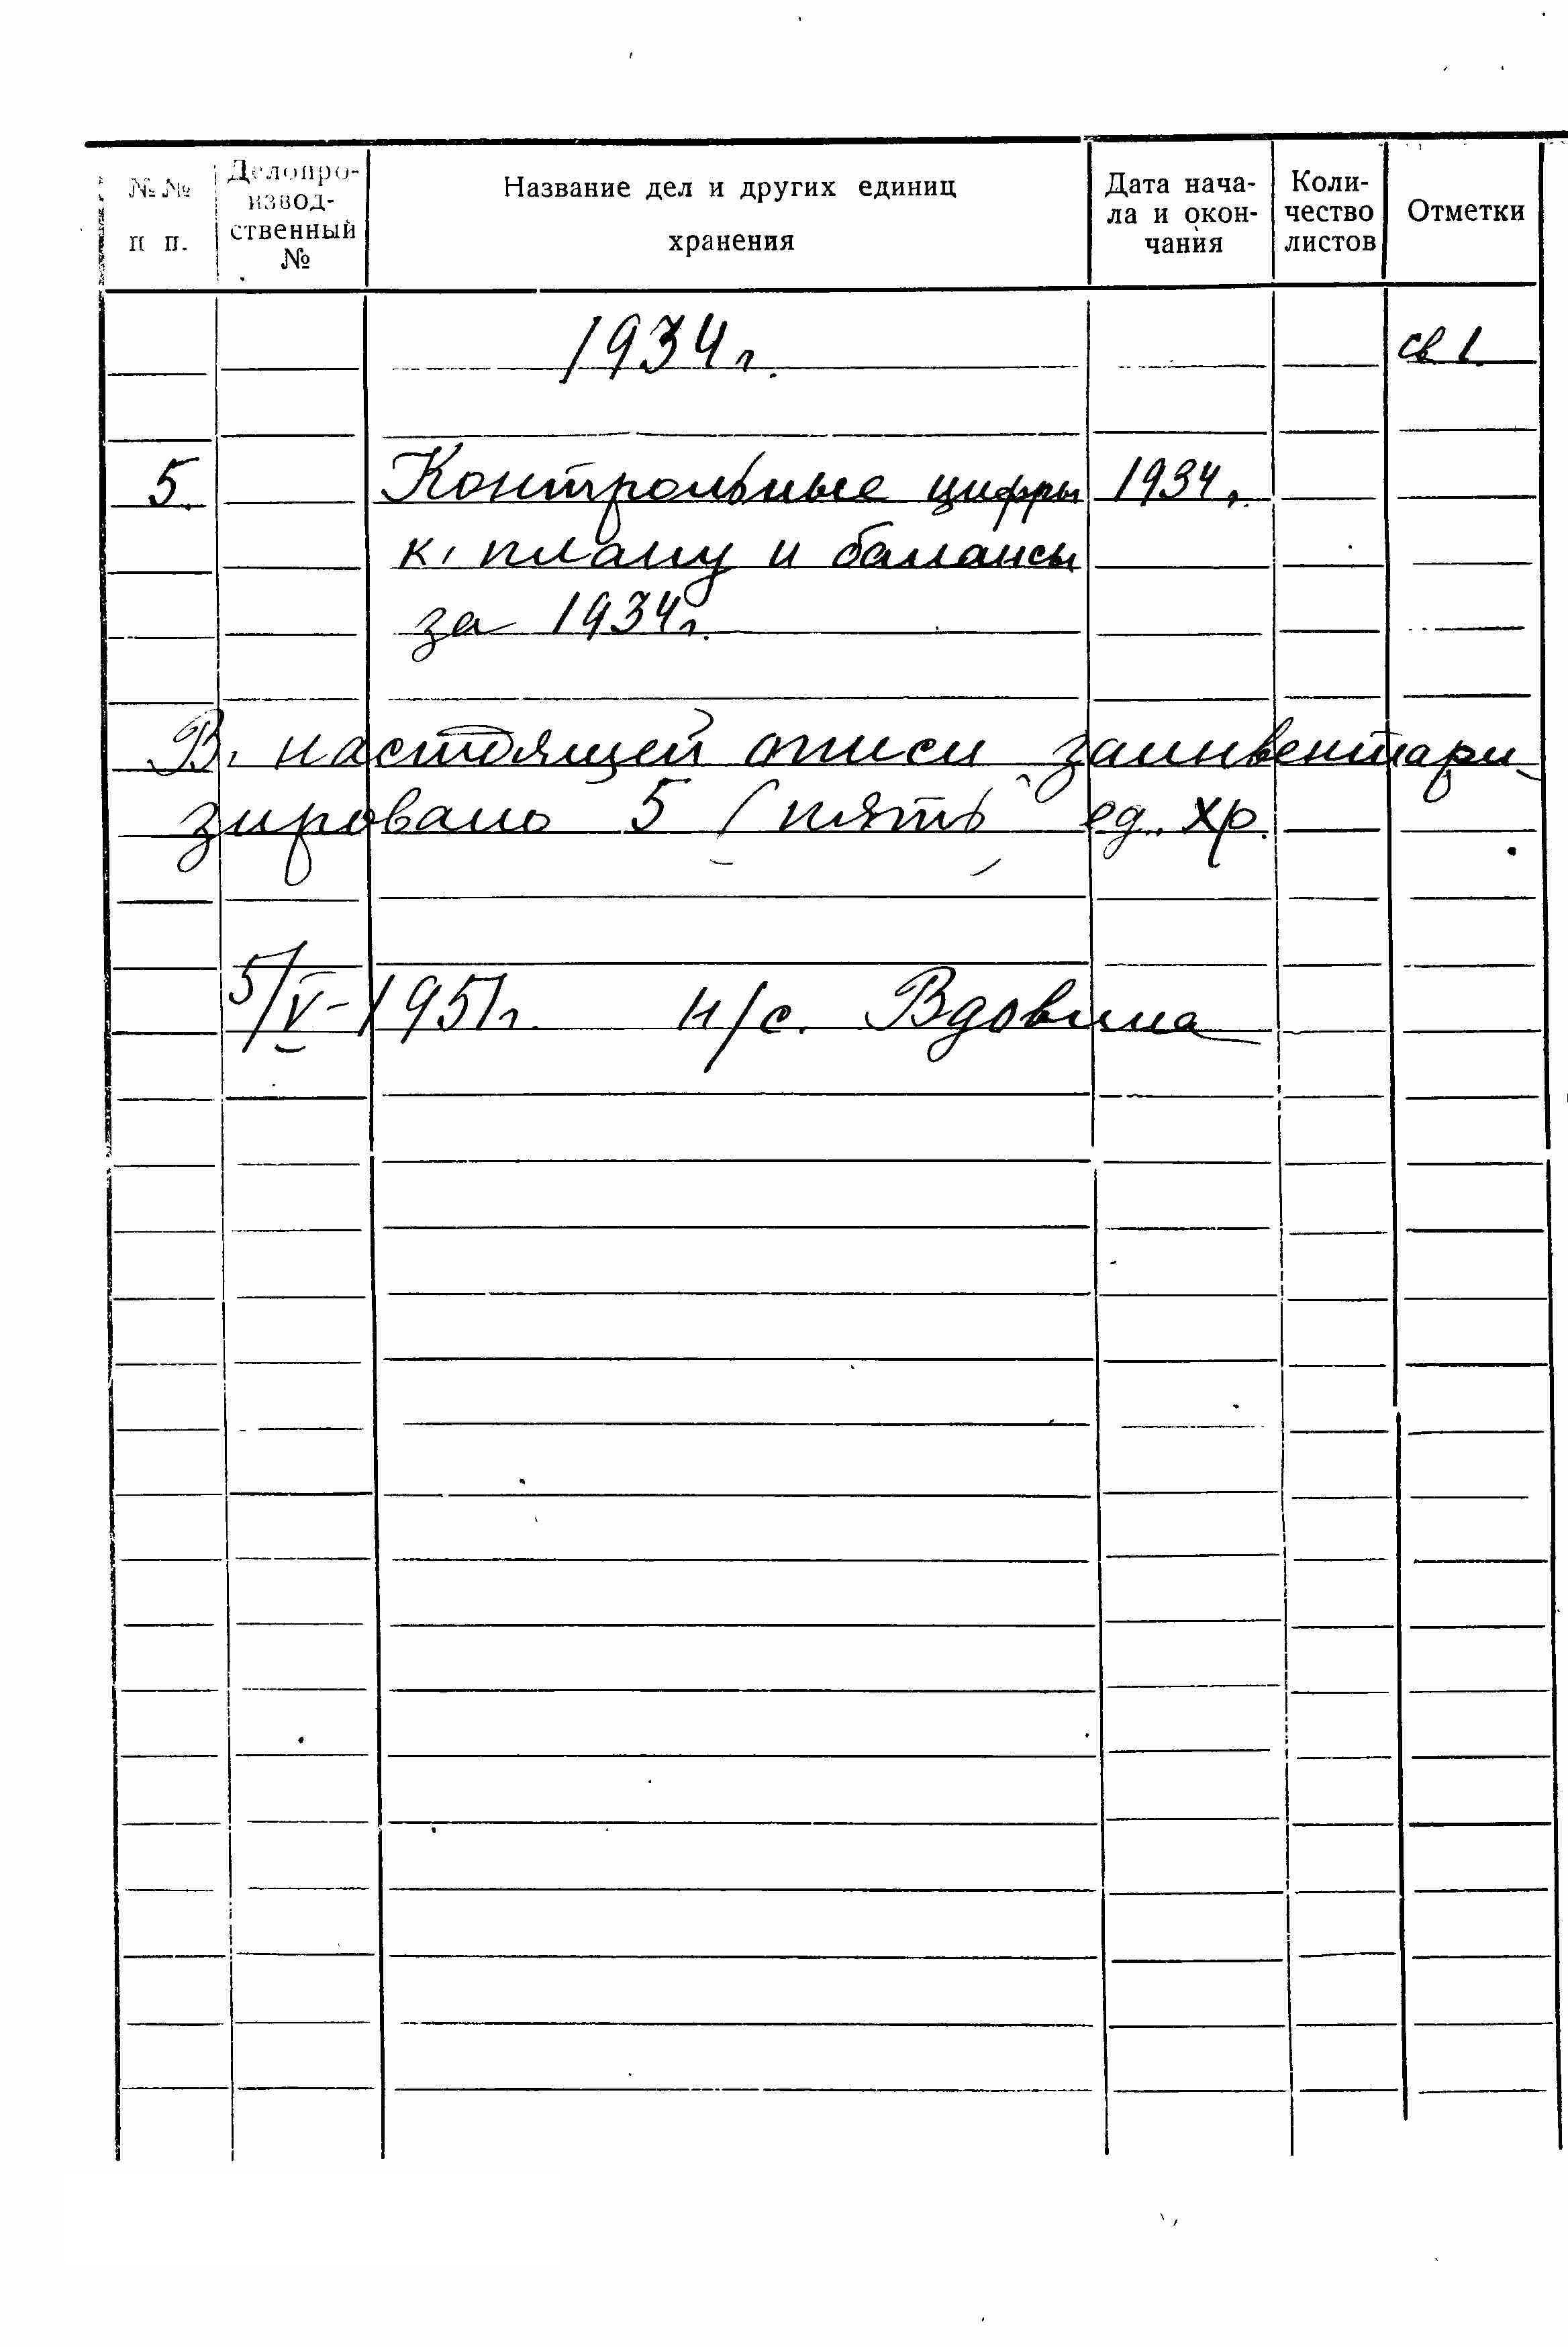 №№ п п.
Делопро-
извод-
ственный
№
Название дел и других единиц
хранения
Дата нача-
ла и окон-
чания
Коли-
чество
листов
Отметки
1934 г. св 1
5. Контрольные цифры 1934 г.
к плану и балансы
за 1934 г.
В настоящей описи заинвентари-
зировано 5 (пять) ед. хр.
5/V-1951 г. н/с. Вдовина